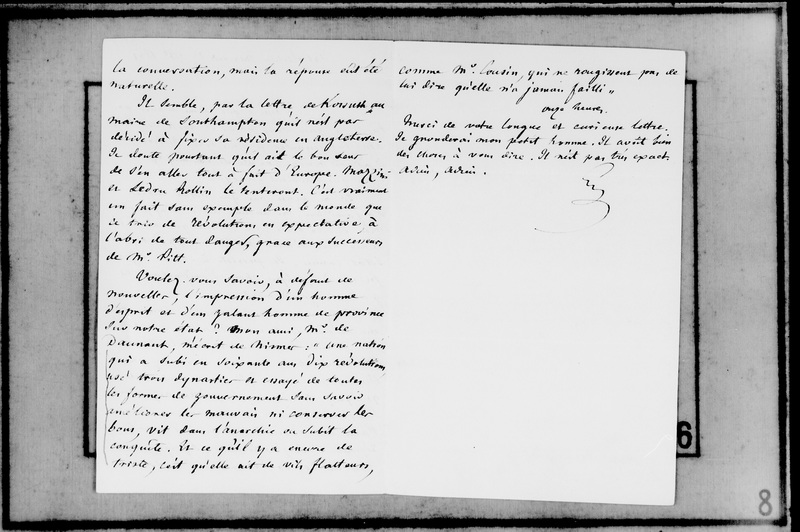 la conversation, mais la réponse eut été
naturelle.
Il semble, par la lettre de Kossuth au
maire de Southampton qu'il n'est pas
décidé à fixer sa résidence en angleterre.
Je doute pourtant qu'il ait le bon sens
de s'en aller tout à fait d'Europe. Mazzini
et Ledru Rollin le tenteront. C'est vraiment
un fait sans exemple dans le monde que
ce trio de révolutions en expectative, à
l'abri de tout danger, grace aux successeurs
de Mr. Pitt.
Voulez-vous savoir, à défaut de
nouvelles, l'impression d'un homme
d'esprit et d'un galant homme de province
sur notre état ? mon ami, Mr. de
Daunant, m'écrit de Nismes : " une nation
qui a subi en soixante ans dix révolutions,
usé trois dynasties et essayé de toutes
les formes de gouvernement sans savoir
améliorer les mauvais ni conserver les
bons, vit dans l'anarchie ou subit la
conquête. Et ce qu'il y a encore de
triste, c'est qu'elle ait de vils flatteurs,
comme Mr. Cousin, qui ne rougissent pas de
lui dire qu'elle n'a jamais failli "
onze heures.
Merci de votre longue et curieuse lettre.
Je gronderai mon petit homme. Il avait bien
des choses à vous dire. Il n'est pas très exact.
adieu, adieu.
6
8